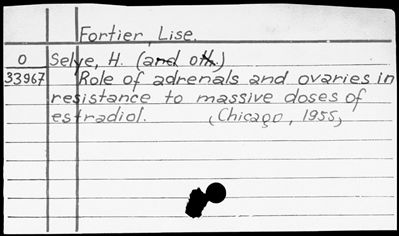 Fortier, Lise.
0 Selye, H. (and oth.)
33967 Role of adrenals and ovaries in
resistance to massive doses of
estradiol. (Chicago, 1955)